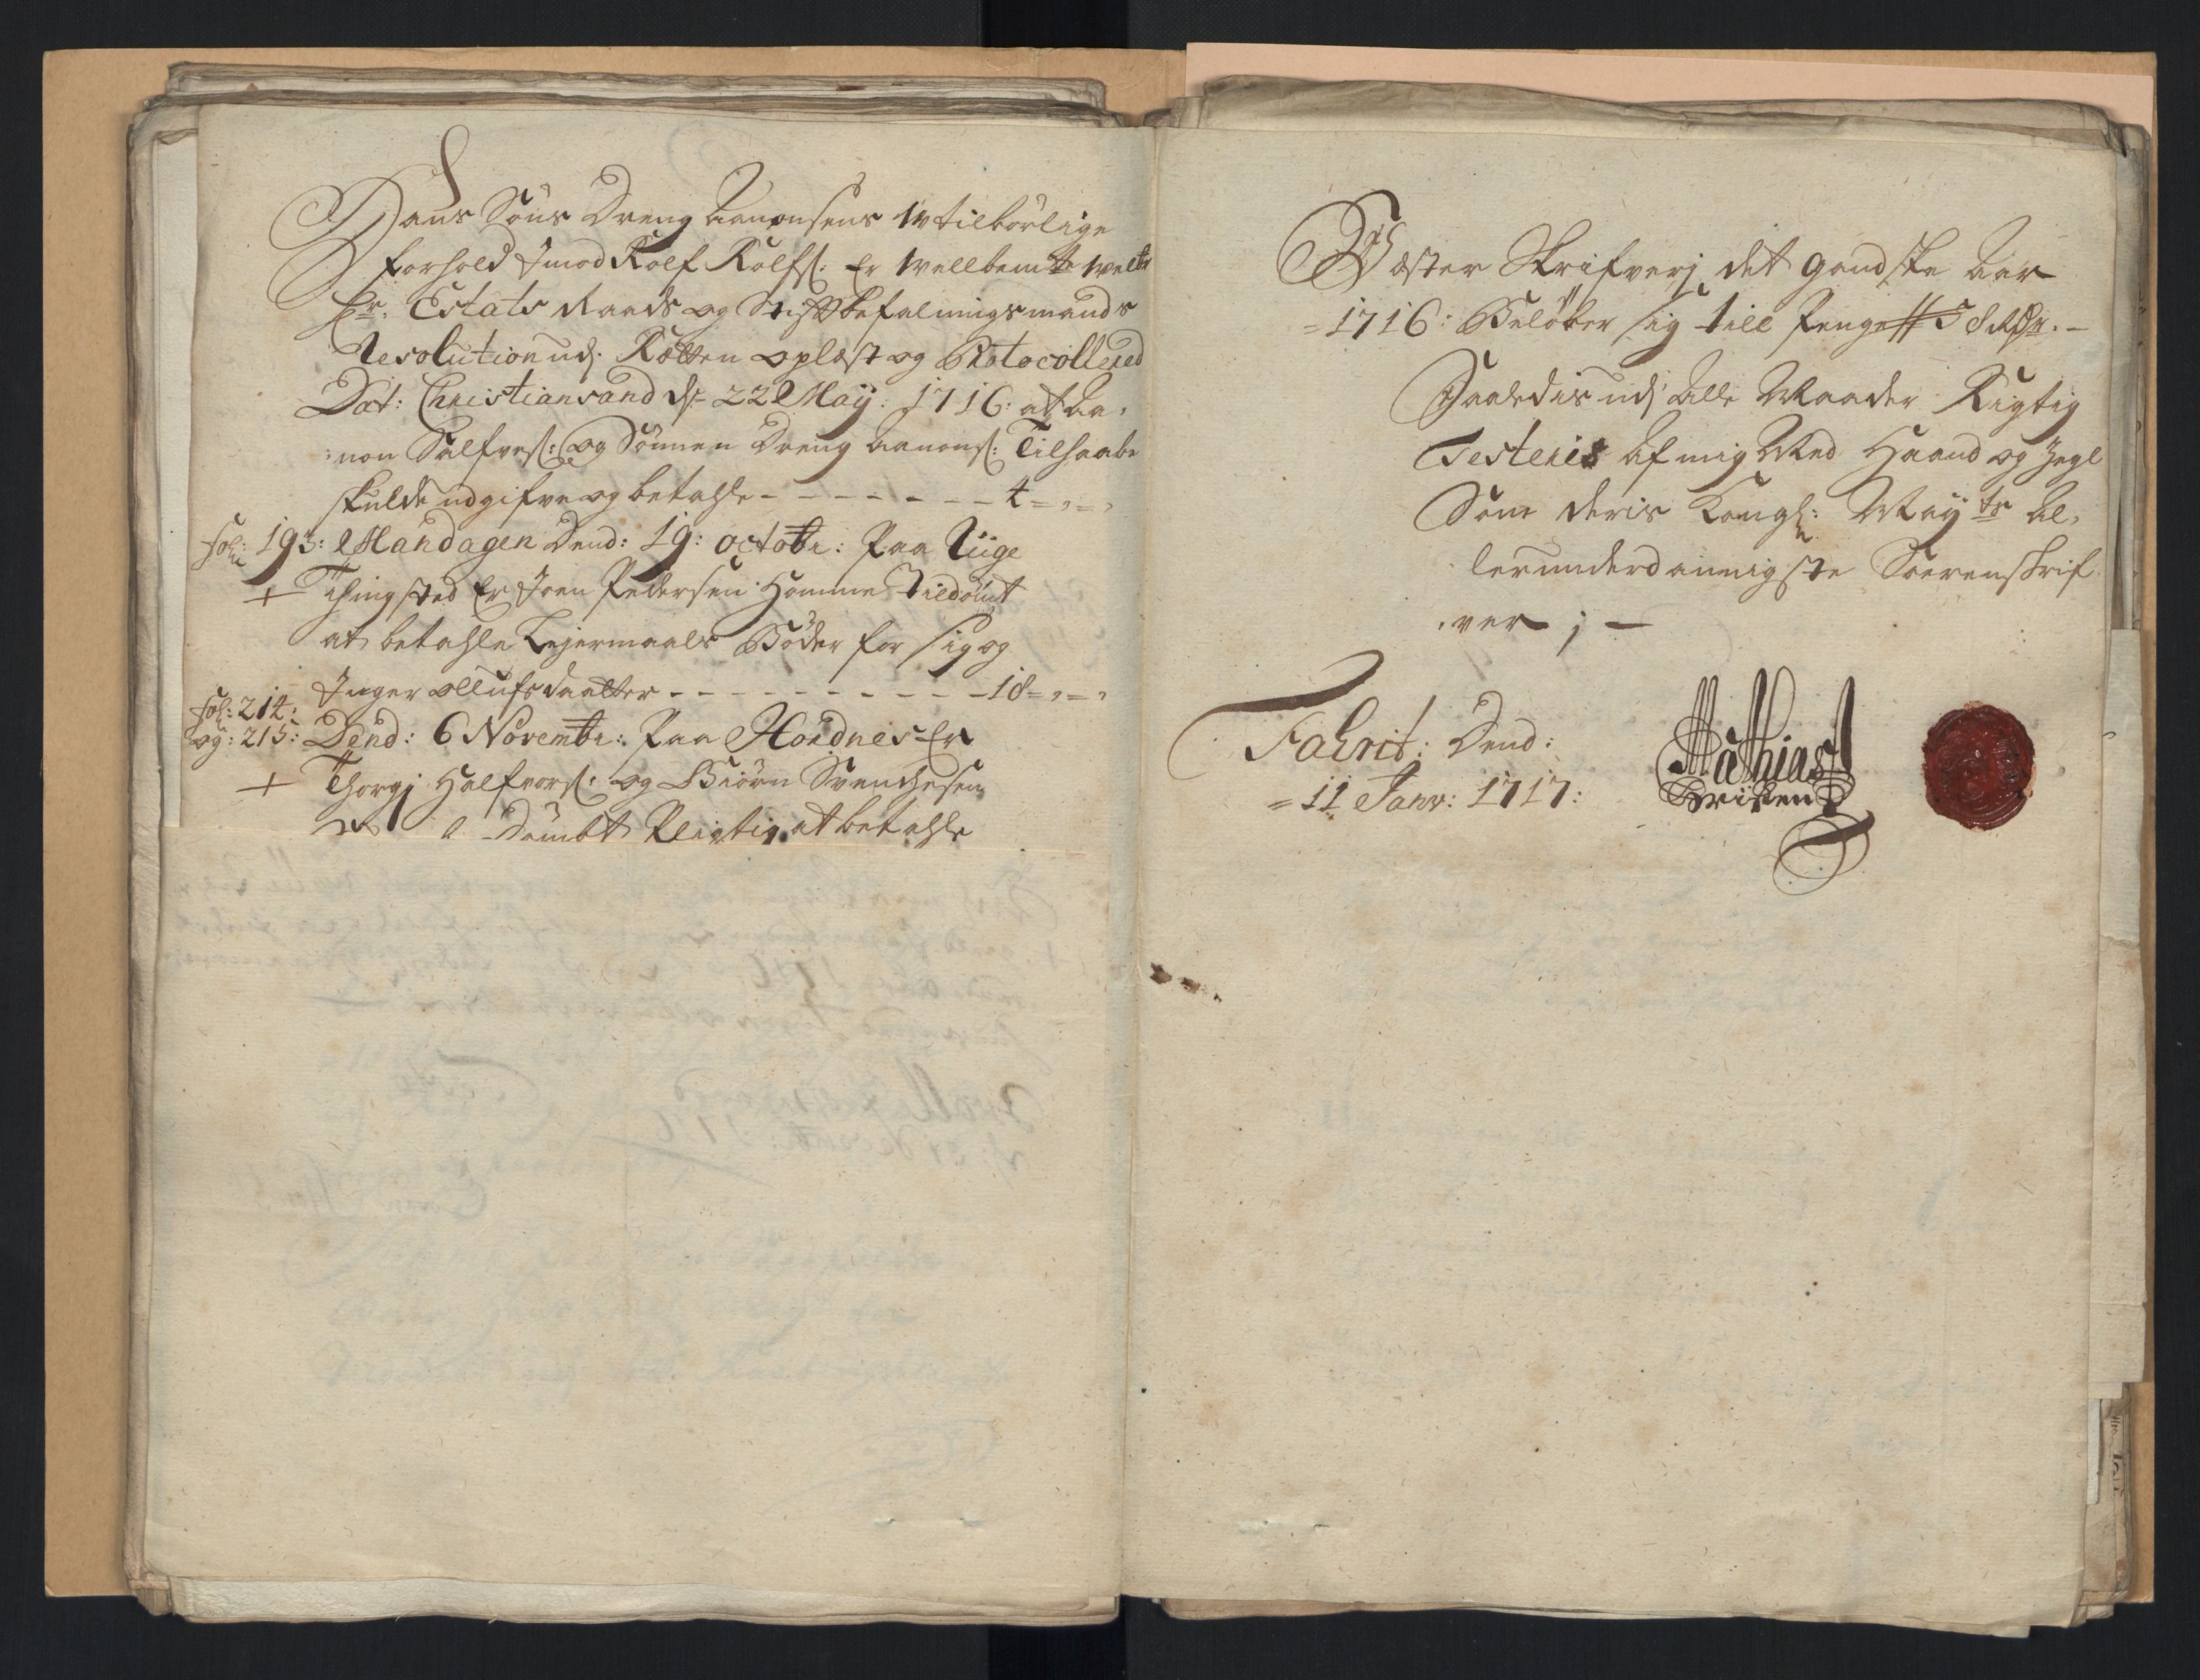 Hans Søns Dreng Aanonsens Utilbørlige
forhold Imod Rolf Rolfs: Er Wellbemte Welbr
Hr: Estats Raads og Stiftbefalningsmands
Resolution udj. Retten oplæst og Protocollered
Dat: Christiansand d: 22 Maÿ: 1716: at Aa,
:non Salfves: og Sønnen Dreng Aanons: Tilsaabe
skulde udgifve og betahle - - - - - - - - 4 = , = ,
fol: 193: Mandagen Dend: 19: octobr: Paa Liige
+ Thingsted Er Joen Pedersen Homme Tildømt
at betahle Lejermaals Bøder for sig og
Inger Ollufsdaatter - - - - - - - - - - - 18 = , = ,
fol: 214:
og: 215: Dend: 6 Novembr: Paa Hordnes Er
+ Thorgj Halfvors: og Biørn Svenchesen
Dømbt Pligtig at betahle
Wæster Skrifverj det gandske Aar
= 1716: Beløber sig till Penge 58 Rdr. -
Saaledis udj Alle Maader Rigtig
Testeris Af mig Med Haand og Zegl
Som deris Kongl: Maÿts Al,
lerunderdannigste Soerenskrif
, ver ; -
Fahret: Dend:
= 11 Janv: 1717:
Mathias